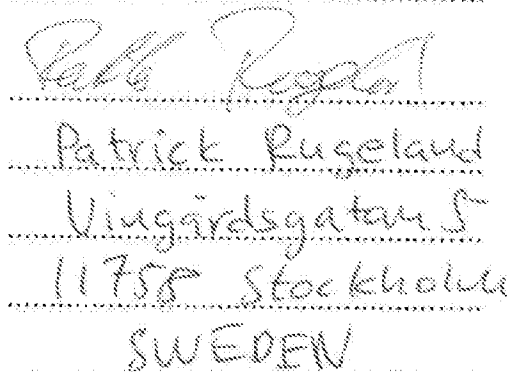 Patrick Rugeland
Vingårdsgatan 5
11758 Stockholm
SWEDEN